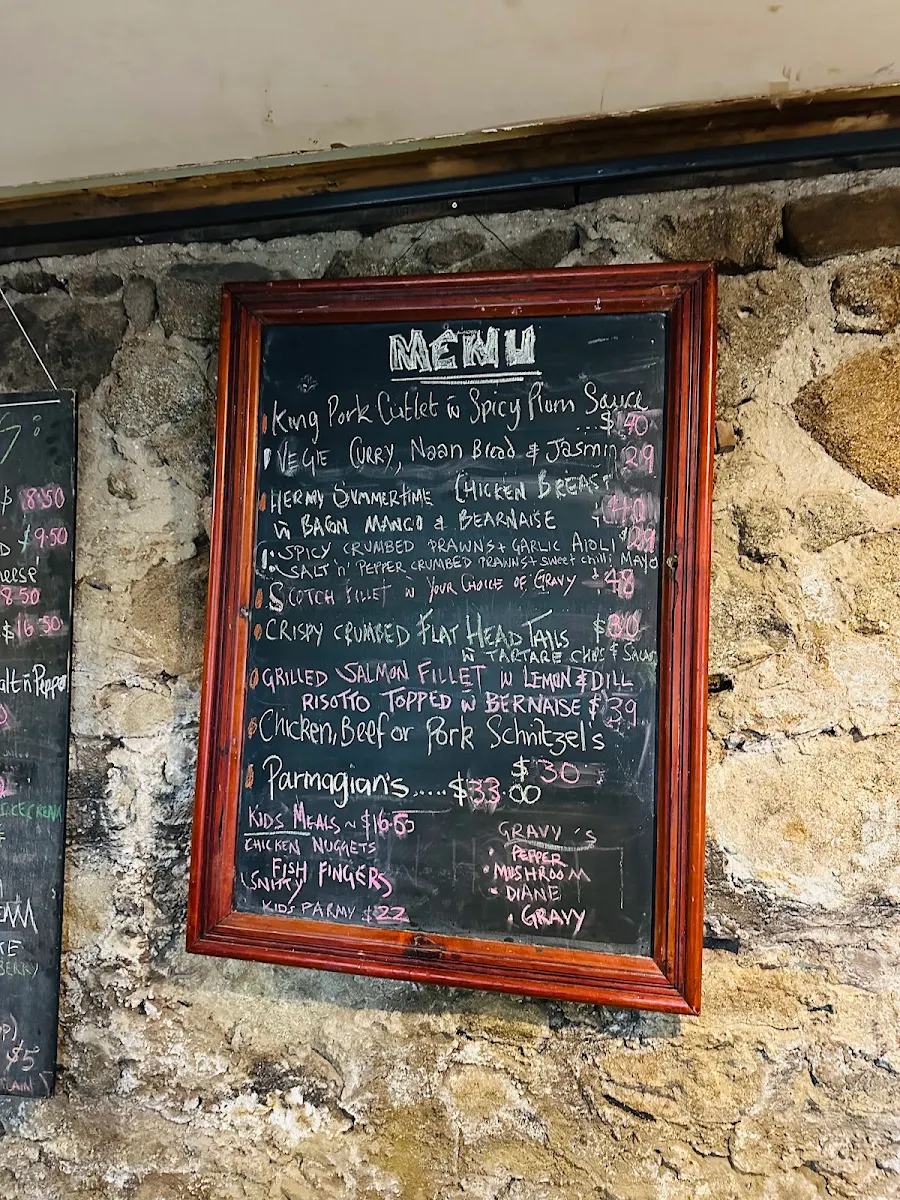 MENU
King Pork Cutlet w Spicy Plum Sauce
...$40
VEGIE CURRY, Naan Bread & Jasmin 29
HERMY SUMMERTIME CHICKEN BREAST
w BACON MANGO & BEARNAISE 40
SPICY CRUMBED PRAWNS + GARLIC AIOLI
SALT 'n' PEPPER CRUMBED PRAWNS + sweet chilli Mayo
SCOTCH FILLET w YOUR CHOICE OF GRAVY 48
CRISPY CRUMBED FLAT HEAD TAILS $30
w TARTARE CHIPS & Salad
GRILLED SALMON FILLET w LEMON & DILL
RISOTTO TOPPED w BERNAISE $39
Chicken, Beef or Pork Schnitzel's
$30
Parmagian's.....$33.00
KIDS MEALS ~ $16.65
CHICKEN NUGGETS
FISH FINGERS
SNITTY
KIDS PARMY $22
GRAVY'S
• PEPPER
• MUSHROOM
• DIANE
• GRAVY
8.50
$9.50
8.50
$16.50
alt n Pepper
BERRY
$5